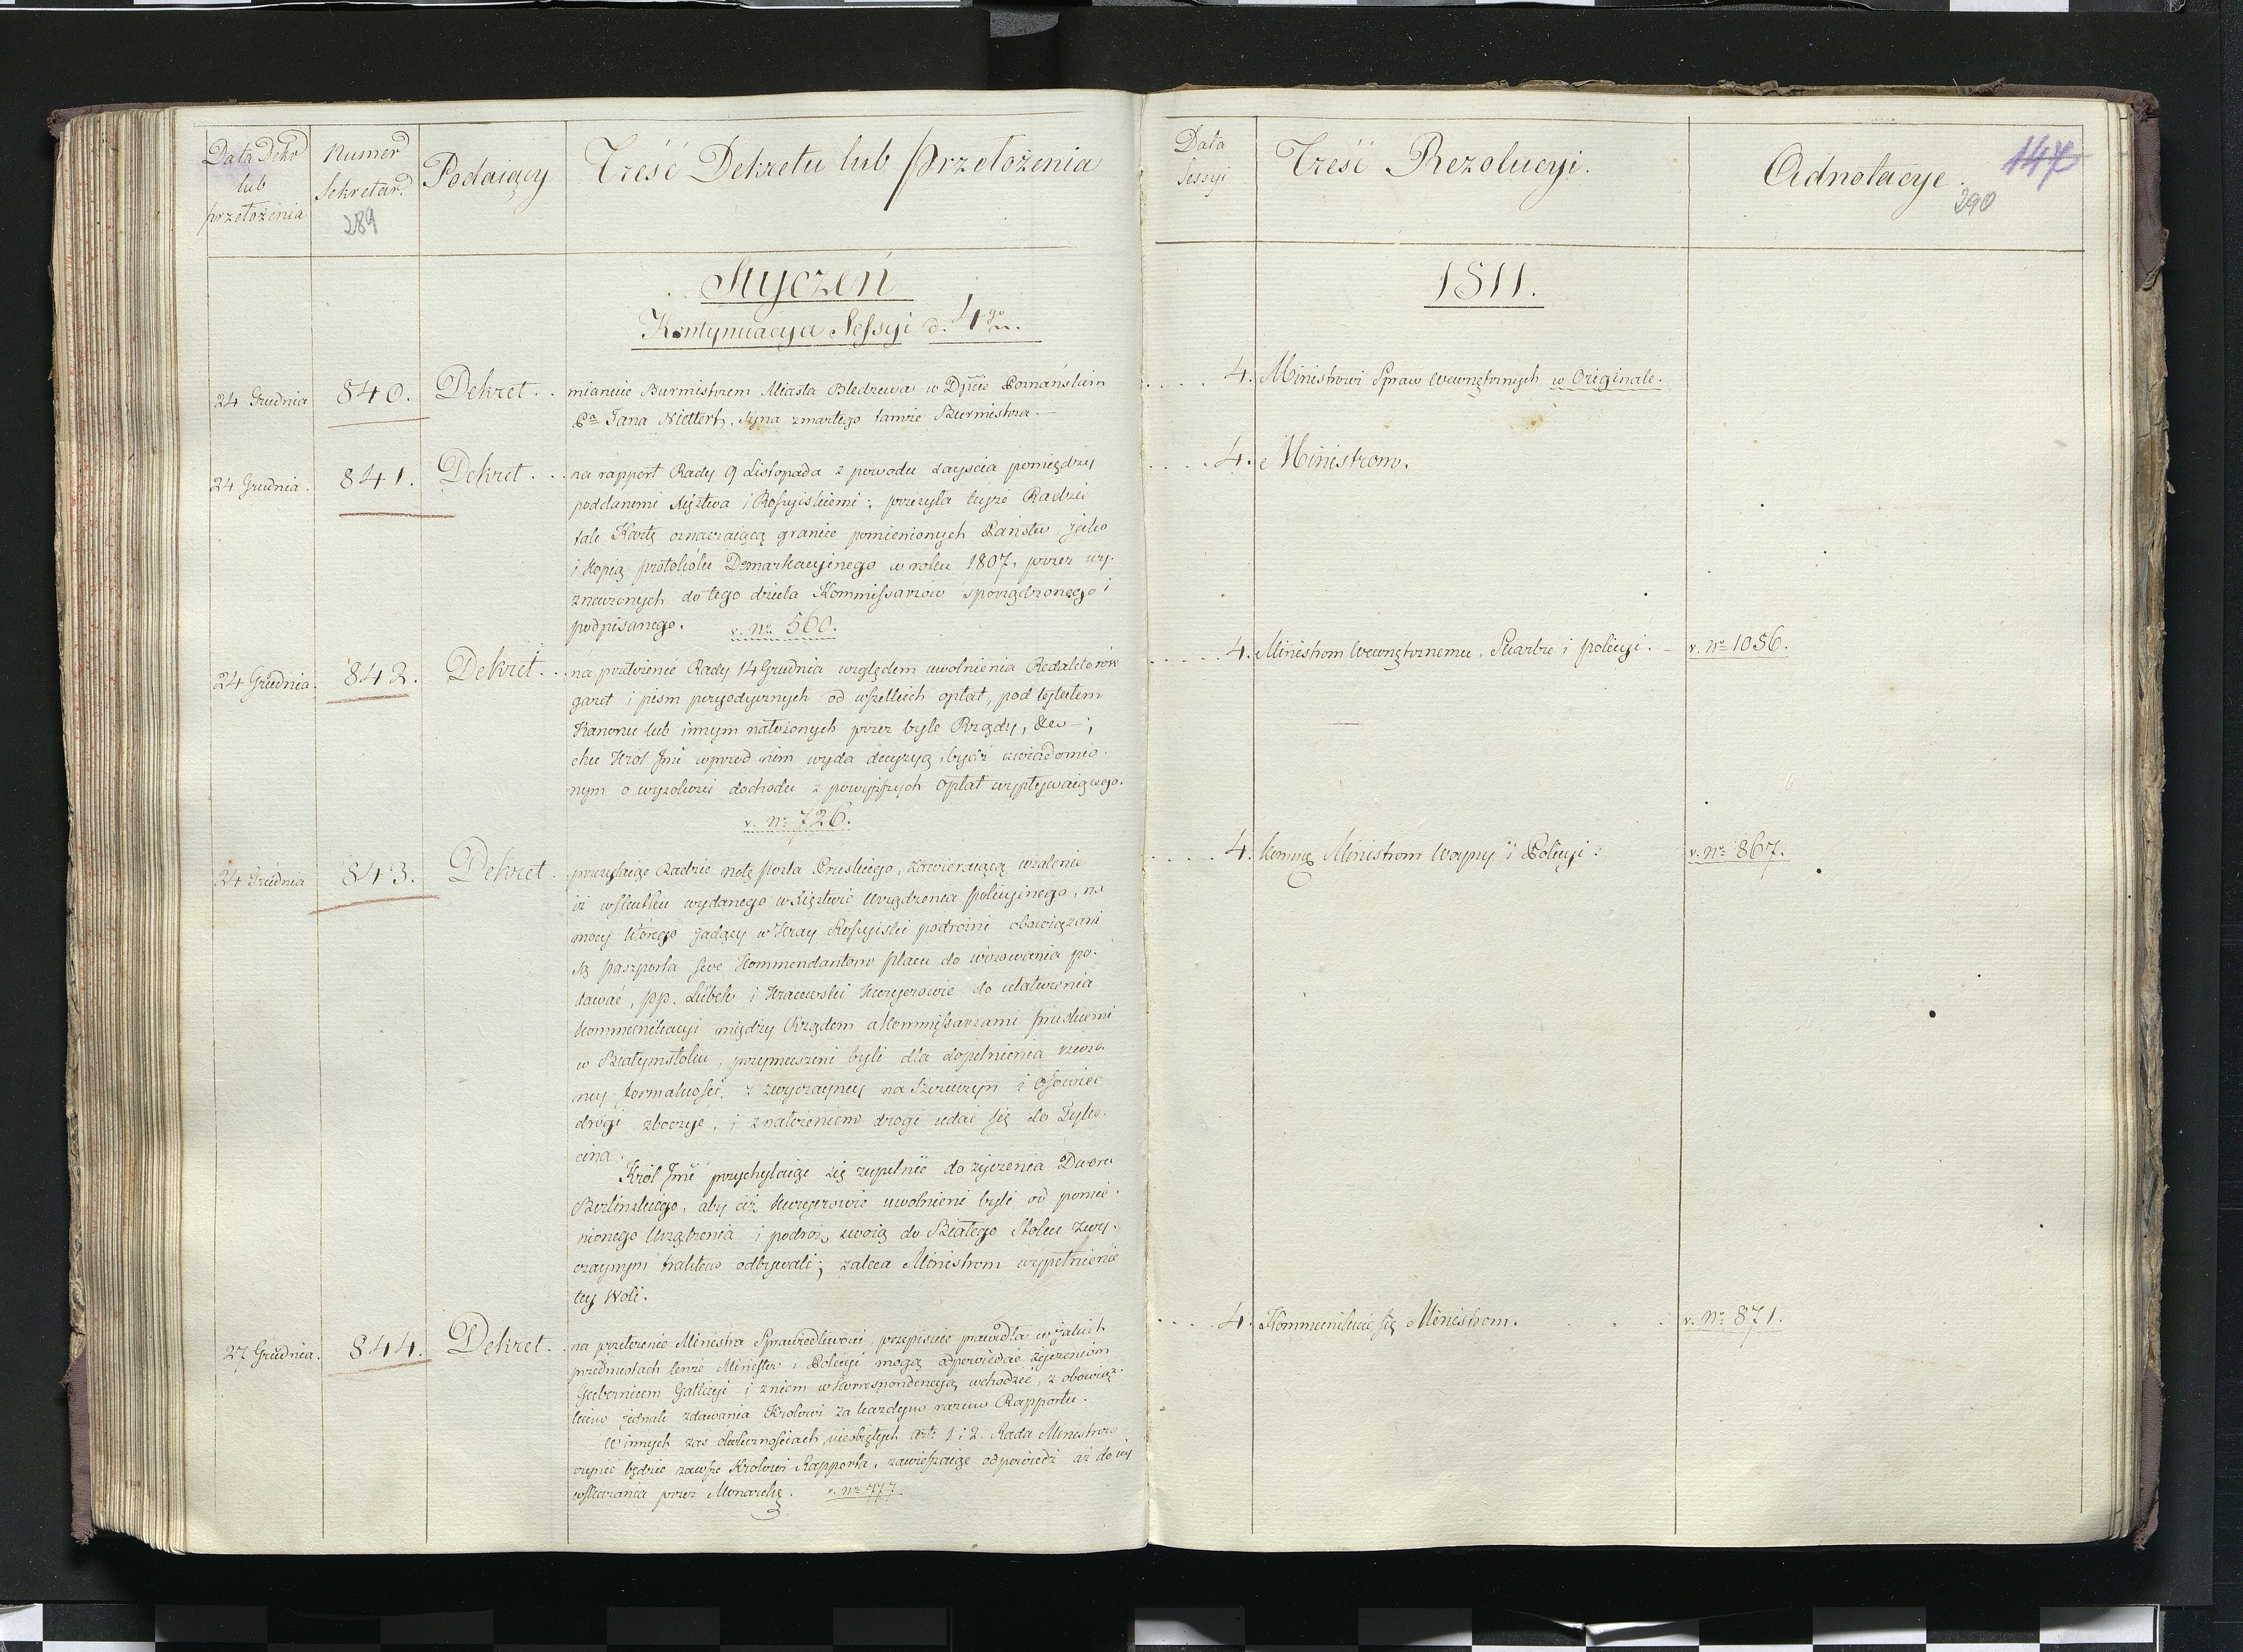 Data Dekr
lub
przełożenia
Numer
Sekretar.
289
Podaiący
Treść Dekretu lub przełożenia
Styczeń
Kontynuacya Sessyi d. 4go
24 Grudnia
840.
Dekret . .
mianuie Burmistrzem Miasta Bledzewa w Dpcie Poznańskim
Pa Jana Niettert, syna zmarłego tamże Burmistrza. —
24 Grudnia.
841.
Dekret . . .
na rapport Rady 9 Listopada z powodu zayścia pomiędzy
poddanemi Xięztwa i Rossyiskiemi; przesyła teyże Radzie
tak Kartę oznaczaiącą granice pomienionych Państw jako
i kopią protokółu Demarkacyinego w roku 1807. przez wy-
znaczonych do tego dzieła Kommissarzów sporządzonego i
podpisanego. v. No 560.
24 Grudnia.
842.
Dekret . . .
na przełożenie Rady 14 Grudnia względem uwolnienia Redaktorów
gazet i pism peryodycznych od wszelkich opłat, pod tytułem
Kanonu lub innym nałożonych przez byłe Rządy, &c —;
chce Król Jmć wprzod nim wyda decyzyą, bydź uwiadomio-
nym o wysokości dochodu z powyższych opłat wypływaiącego.
v. No 726.
24 Grudnia
843.
Dekret .
przesyłaiąc Radzie notę posła Pruskiego, zawieraiącą użalenie
iż wskutku wydanego w Xięztwie Urządzenia policyinego, na
mocy którego jadący w Kray Rossyiski podróżni obowiązani
są paszporta swe Kommendantom placu do wizowania po-
dawać, pp. Lübek i Kraiewski Kuryerowie do ułatwienia
kommunikacyi między Rządem a Kommissarzami pruskiemi
w Białymstoku, przymuszeni byli dla dopełnienia rzeczo-
ney formalności, z zwyczayney na Szczuczyn i Osowiec
drogi zboczyć, i z nałożeniem drogi udać się do Tyko-
cina.
Król Jmć przychylaiąc się zupełnie do życzenia Dworu
Berlinskiego, aby ciż kuryerowie uwolnieni byli od pomie-
nionego Urządzenia i podróż swoią do Białego Stoku zwy-
czaynym traktem odbywali; zaleca Ministrom wypełnienie
tey Woli.
27 Grudnia.
844.
Dekret . .
na przełożenie Ministra Sprawiedliwości, przepisuie prawidła w jakich
przedmiotach tenże Minister i Policyi mogą odpowiedać życzeniom
Gubernium Gallicyi i z niem w korrespondencyą wchodzić, z obowiąz-
kiem jednak zdawania Królowi za każdym razem Rapportu.
W innych zaś okolicznościach nieobiętych art. 1 i 2. Rada Ministrów
czynić będzie zawsze Królowi Rapporta, zawieszaiąc odpowiedź aż do iey
wskazania przez Monarchę. v. No 777
Data
Sessyi
Treść Rezolucyi.
Adnotacye.
147
290
1811.
. . . . 4. Ministrowi Spraw Wewnętrznych w Originale.
. . . . 4. Ministrom.
. . . . . 4. Ministrom Wewnętrznemu, Skarbu i policyi. — v. No 1056.
. . . . 4. Ministrom Woyny i Policyi: v. No 867.
. . . . 4. Kommunikuie się Ministrom. v. No 871.